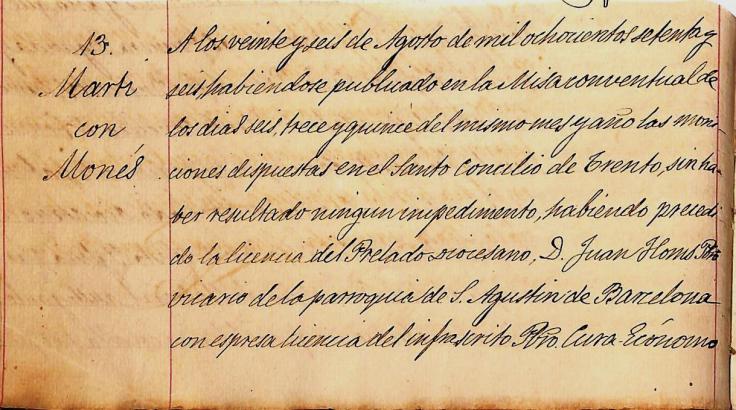 13.
Martí
con
Monés
A los veinte y seis de Agosto de mil ochocientos setenta y
seis, habiendose publicado en la Misa conventual de
los dias seis, trece y quince del mismo mes y año las moni-
ciones dispuestas en el Santo Concilio de Trento, sin ha-
ber resultado ningun impedimento, habiendo precedi-
do la licencia del Prelado diocesano, D. Juan Homs Pbro
vicario de la parroquia de S. Agustin de Barcelona
con espresa licencia del infrascrito Pbro. Cura-Ecónomo